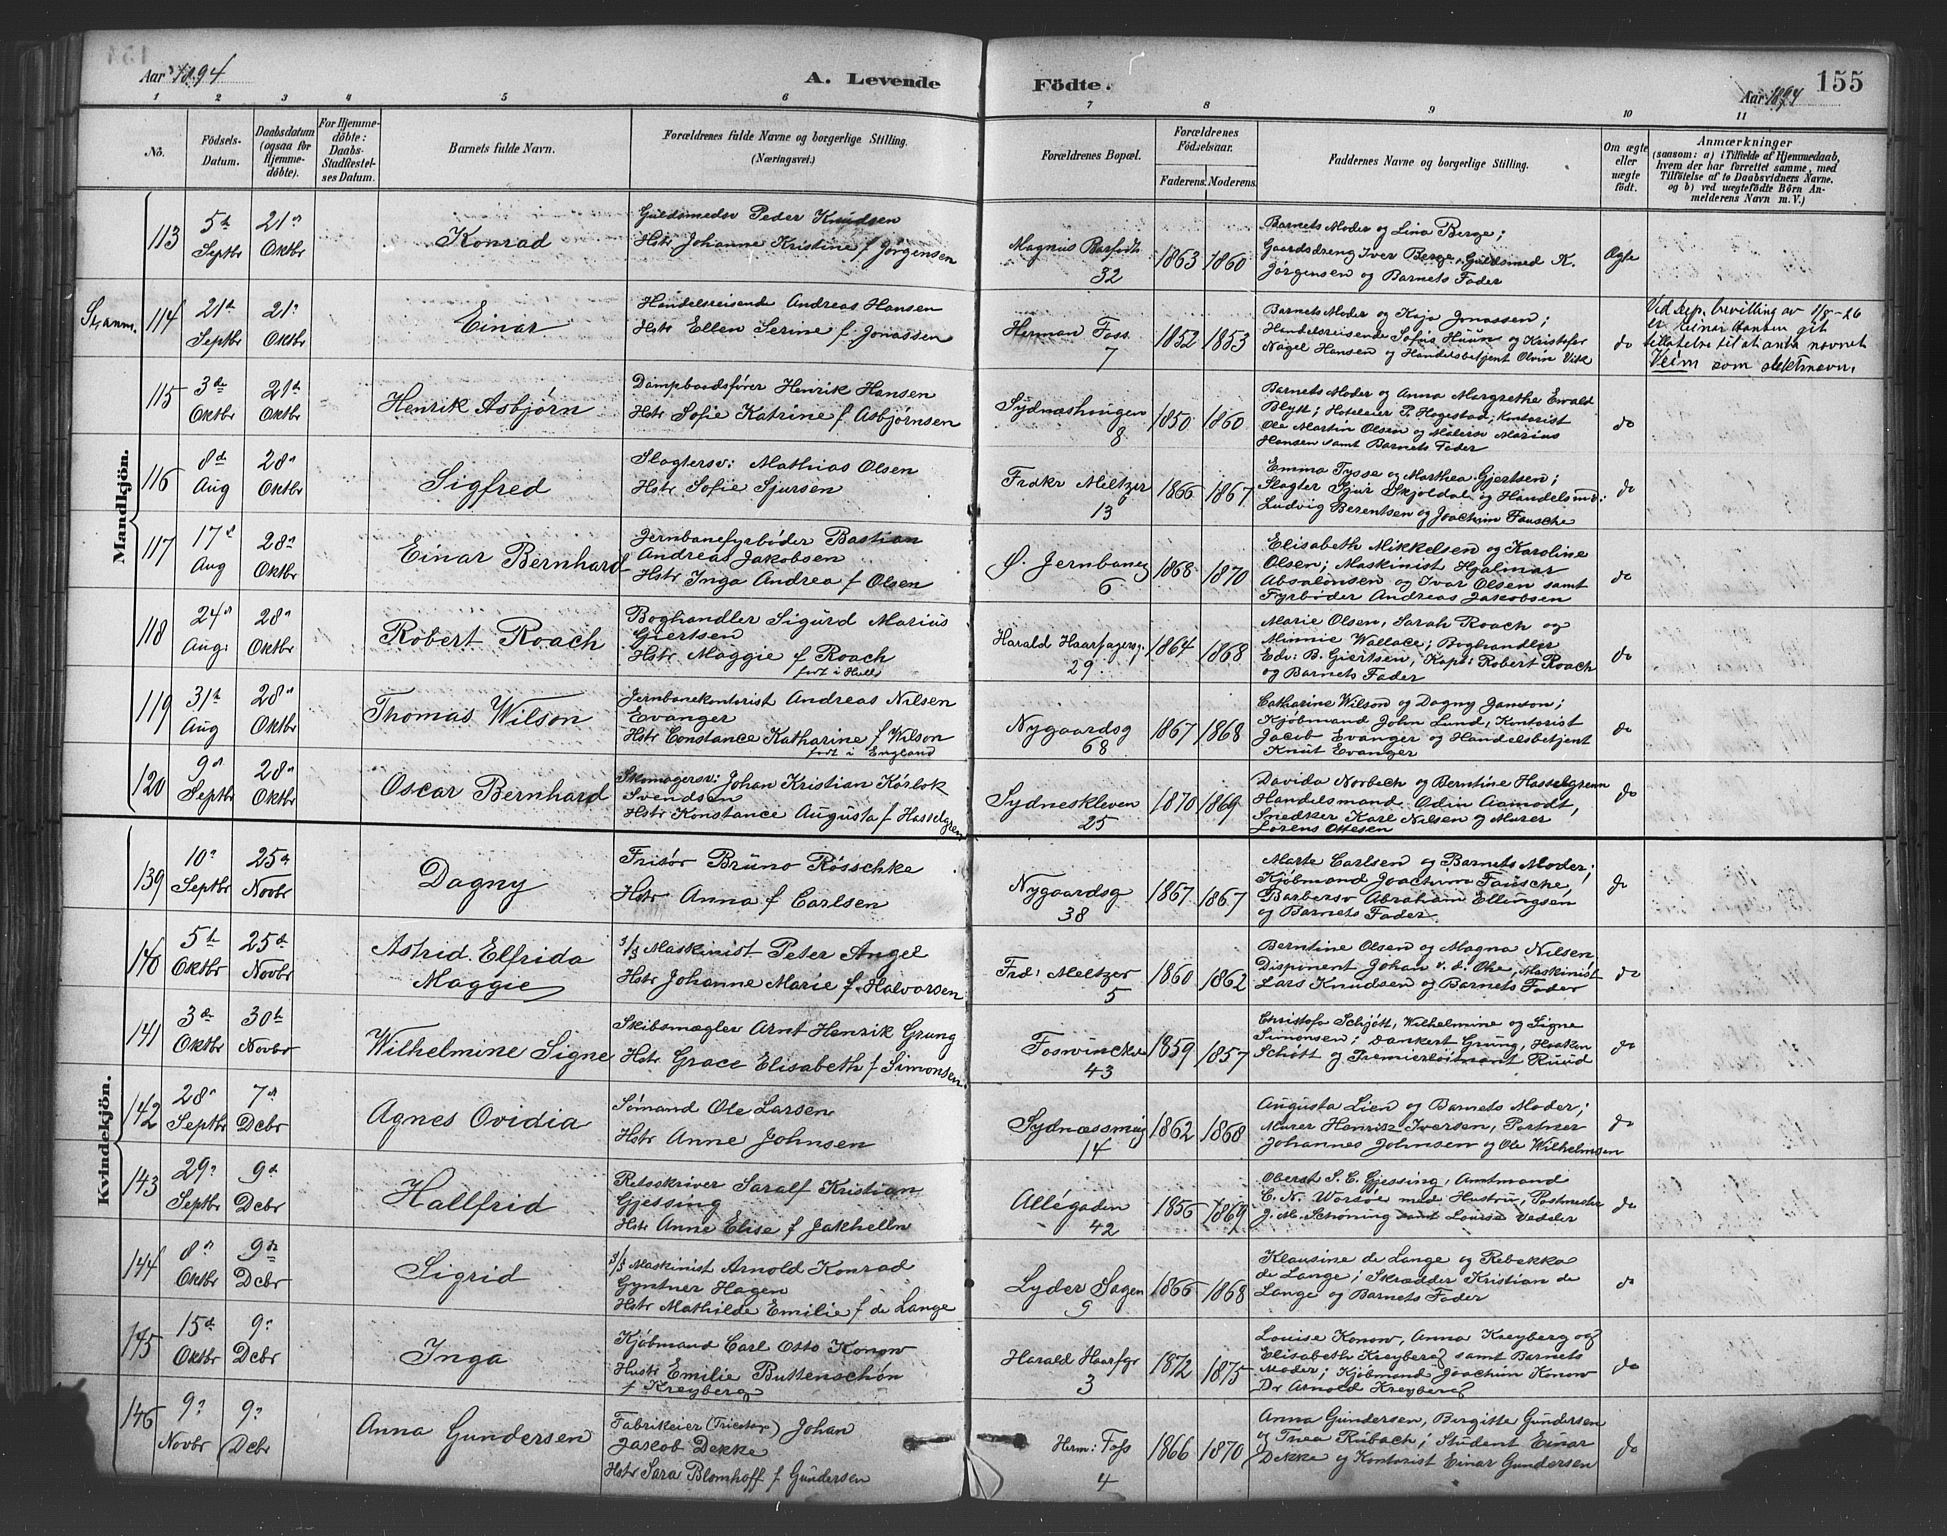 Aar 1894
A. Levende
Födte.
Aar 1894
155
1 2 3 4 5 6 7 8 9 10 11
No.
Födsels-
Datum.
Daabsdatum
(ogsaa for
Hjemme-
döbte).
For Hjemme-
döbte:
Daabs-
Stadfestel-
ses Datum.
Barnets fulde Navn.
Forældrenes fulde Navne og borgerlige Stilling.
(Næringsvei.)
Forældrenes Bopæl.
Forældrenes
Födselsaar.
Faderens. Moderens.
Faddernes Navne og borgerlige Stilling.
Om ægte
eller
uægte
födt.
Anmærkninger
(saasom: a) i Tilfælde af Hjemmedaab,
hvem der har forrettet samme, med
Tilföielse af to Daabsvidners Navne,
og b) ved uægtefödte Börn An-
melderens Navn m. V.)
Mandkjön.
113
5te
Septbr
21d
Oktbr
Konrad
Guldsmedsv Peder Knudsen
Hstr Johanne Kristine f Jørgensen
Magnus Barfodts
32
1863 1860
Barnets Moder og Lina Berge;
Gaardsdreng Iver Berge, Guldsmed K.
Jørgensen og Barnets Fader
Ægte
114
21d
Septbr
21d
Oktbr
Einar
Handelsreisende Andreas Hansen
Hstr Ellen Serine f. Jonassen
Herman Foss
7
1852 1853
Barnets Moder og Kaja Jonassen;
Handelsreisende Sofus Huun og Kristofer
Nagel Hansen og Handelsbetjent Olvin Vik
do
Ved dep. bevilling av 11/8-26
er Einar Hansen git
tillatelse til at anta navnet
Veim som slektnavn.
115
3de
Oktbr
21d
Oktbr
Henrik Asbjørn
Dampbaadsfører Henrik Hansen
Hstr Sofie Katrine f Asbjørnsen
Sydneshougen
8
1850 1860
Barnets Moder og Anna Margrethe Ewald
Blytt; Hoteleier P. Hogestad, Kontorist
Ole Martin Olsen og Malersv Marius
Hansen samt Barnets Fader
do
116
8d
Aug
28d
Oktbr
Sigfred
Slagtersv: Mathias Olsen
Hstr Sofie Sjursen
Fredkr Meltzer
13
1866 1867
Emma Tysse og Marthea Gjertsen;
Slagter Sjur Skjoldal og Handelsmd:
Ludvig Berentsen og Joachim Fausche
do
117
17d
Aug
28d
Oktbr
Einar Bernhard
Jernbanefyrbøder Bastian
Andreas Jakobsen
Hstr Inga Andrea f Olsen
Ø. Jernbaneg
6
1868 1870
Elisabeth Mikkelsen og Karoline
Olsen; Maskinist Hjalmar
Absalonsen og Ivar Olsen samt
Fyrbøder Andreas Jakobsen
do
118
24d
Aug:
28d
Oktbr
Robert Roach
Boghandler Sigurd Marius
Giertsen
Hstr Maggie f Roach
født i Hull
Harald Haarfagersg.
29
1864 1868
Marie Olsen, Sarah Roach og
Minnie Wallace; Boghandler
Edv: B. Giertsen, Kapt: Robert Roach
og Barnets Fader
do
119
31te
Aug
28d
Oktbr
Thomas Wilson
Jernbanekontorist Andreas Nilsen
Evanger
Hstr Constance Katharine f Wilson
født i England
Nygaardsg
68
1867 1868
Catharine Wilson og Dagny Janson;
Kjøbmand John Lund, Kontorist
Jacob Evanger og Handelsbetjent
Knut Evanger
do
120
9d
Septbr
28d
Oktbr
Oscar Bernhard
Skomagersv: Johan Kristian Karlok
Svendsen
Hstr Konstance Augusta f Hasselgren
Sydneskleven
25
1870 1869
Davida Norbech og Berntine Hasselgrenn
Handelsmand Odin Aamodt,
Snedker Karl Nilsen og Murer
Lorens Ottesen
do
Kvindekjön.
139
10d
Septbr
25d
Novbr
Dagny
Frisør Bruno Röschke
Hstr Anna f Carlsen
Nygaardsg
38
1867 1867
Marte Carlsen og Barnets Moder;
Kjøbmand Joachim Fausche,
Barbersv Abraham Ellingsen
og Barnets Fader
do
140
5te
Oktbr
25d
Novbr
Astrid Elfrida
Maggie
Maskinist Peter Angel
Hstr Johanne Marie f. Halvorsen
Frd: Meltzer
5
1860 1862
Berntine Olsen og Magna Nilsen,
Disponent Johan v. d. Ohe, Maskinist
Lars Knudsen og Barnets Fader
do
141
3de
Oktbr
30te
Novbr
Wilhelmine Signe
Skibsmægler Arnt Henrik Grung
Hstr. Grace Elisabeth f Simonsen
Fosswinckels
43
1859 1857
Christofa Schjøtt, Wilhelmine og Signe
Simonsen; Dankert Grung, Haaken
Schøtt og Premierløitnant Ruud
do
142
28d
Septbr
7d
Dcbr
Agnes Ovidia
Sømand Ole Larsen
Hstr Anne Johnsen
Sydnæssmug
14
1862 1868
Augusta Lien og Barnets Moder;
Murer Henrik Iversen, Portner
Johannes Johnsen og Ole Wilhelmsen
do
143
29d
Septbr
9d
Dcbr
Hallfrid
Retsskriver Saralf Kristian
Gjessing
Hstr Anne Elise f Jakhelln
Allégaden
42
1856 1869
Oberst S. C. Gjessing, Amtmand
C. N. Worsøe med Hustru, Postmester
J. M. Schøning samt Louise Vedeler
do
144
8d
Oktbr
9d
Dcbr
Sigrid
Maskinist Arnold Konrad
Gyntner Hagen
Hstr Mathilde Emilie f de Lange
Lyder Sagen
9
1866 1868
Klausine de Lange og Rebekka
de Lange; Skrædder Kristian de
Lange og Barnets Fader
do
145
15d
Oktbr
9d
Dcbr
Inga
Kjøbmand Carl Otto Konow
Hustr Emilie Buttenschøn
f Kreyberg
Harald Haarfgr
3
1872 1875
Louise Konow, Anna Kreyberg og
Elisabeth Kreyberg samt Barnets
Moder; Kjøbmand Joachim Konow
Dr Arnold Kreyberg
do
146
9d
Novbr
9d
Dcbr
Anna Gundersen
Fabrikeier (Tricotage) Johan
Jascob Dekke
Hstr Sara Blomhoff f Gundersen
Herm: Foss
4
1866 1870
Anna Gundersen, Birgitte Gundersen
og Thea Rubach; Student Einar
Dekke og Kontorist Einar Gundersen
do